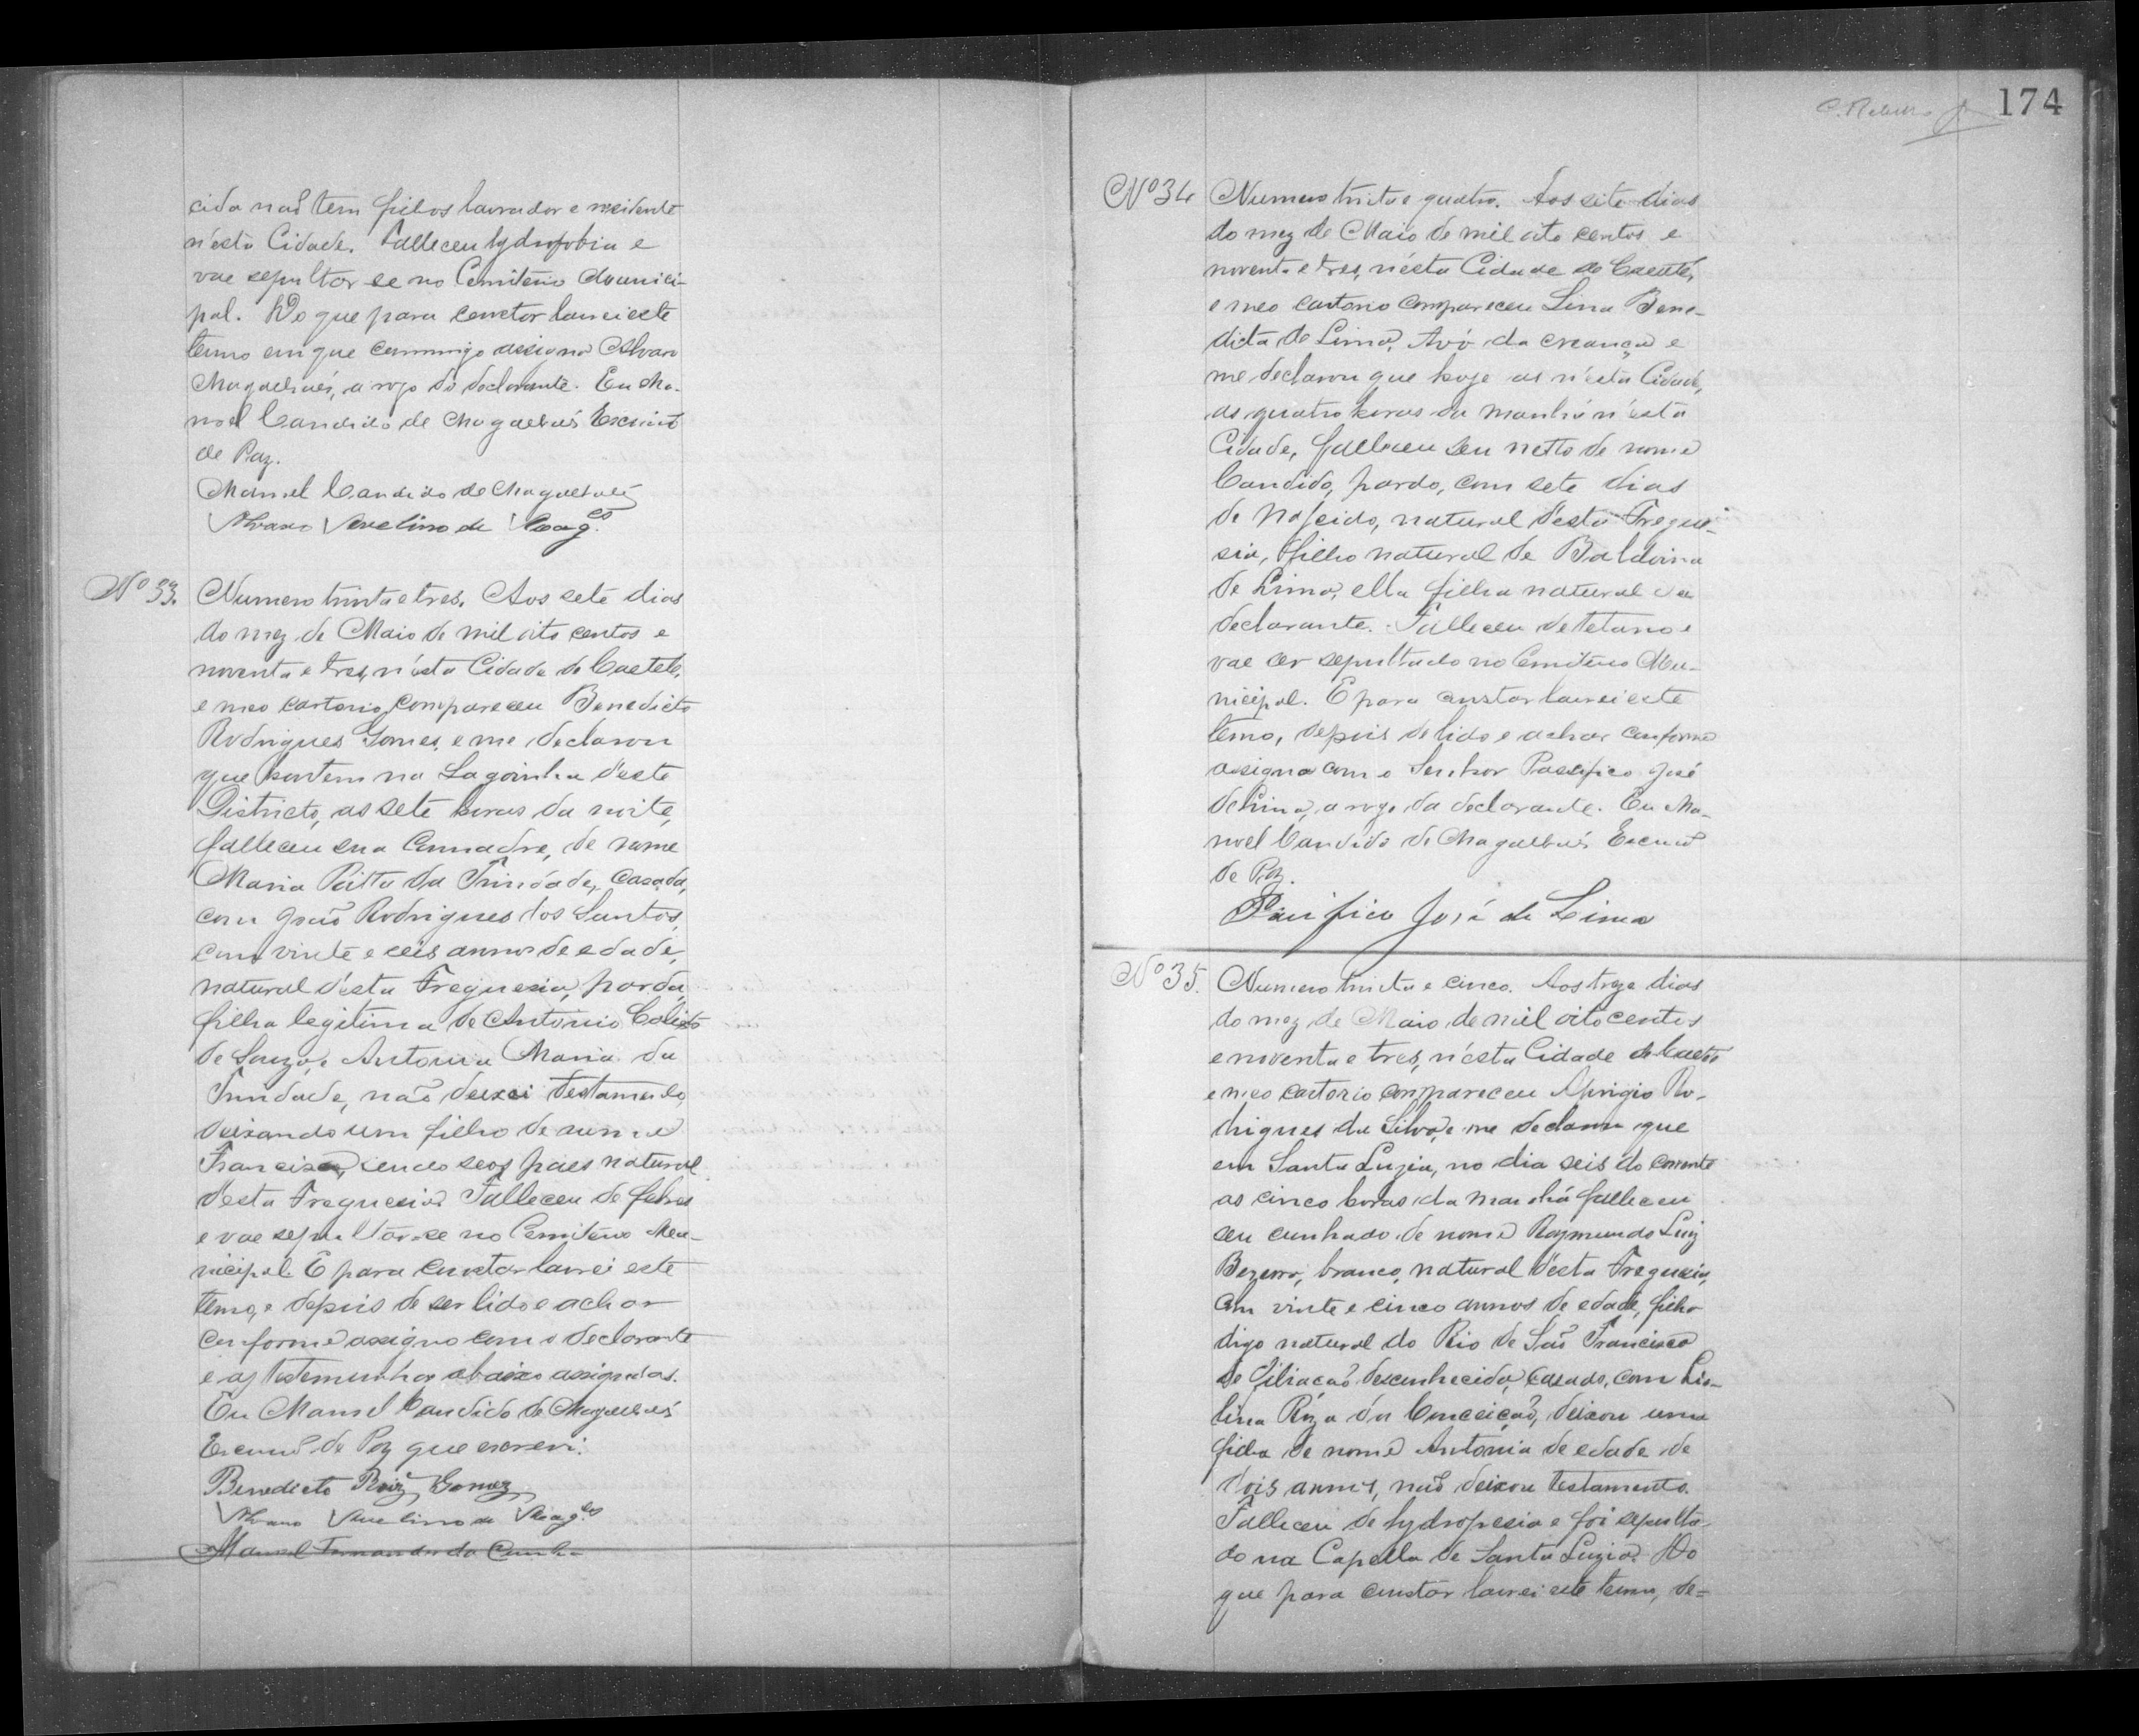 cida naõ tem filhos lavrador e residente
n'esta Cidade. Falleceu hydrofobia e
vae sepultar se no Cemiterio Munici-
pal. Do que para constar lavrei este
termo em que commigo assigna Alvaro
Magalhaẽs, a rogo do declarante. Eu Ma-
noel Candido de Magalhaẽs Escrivaõ
de Paz.
Manoel Candido de Magalhaẽs
Alvaro Avelino de Mag.es
Nº 33.
Numero trinta e tres. Aos sete dias
do mez de Maio de mil oito centos e
noventa e tres, n'esta Cidade de Caeteté,
e meo cartorio, compareceu Benedicto
Rodrigues Gomes, e me declarou
que hontem na Lagoinha d'este
Districto, as sete horas da noite,
falleceu sua Comadre, de nome
Maria Ritta da Trindade, casada,
com João Rodrigues dos Santos,
com vinte e seis annos de edade,
natural d'esta Freguesia, parda,
filha legitima de Antonio Calisto
de Souza, e Antonia Maria da
Trindade, naõ deixou testamento,
deixando um filho de nome
Francisco, sendo seos paes natural
desta Freguesia. Falleceu de febres
e vae sepultar-se no Cemiterio Mu-
nicipal. E para constar lavrei este
termo, e depois de ser lido e achar
conforme assigno com o declarante
e as testemunhas abaixo assignadas.
Eu Manoel Candido de Magalhaẽs
Escrivaõ de Paz que escrevi.
Benedicto Roiz Gomes
Alvaro Avelino de Mag.es
Manoel Fernandes da Cunha
174
Nº 34
Numero trinta e quatro. Aos sete dias
do mez de Maio de mil oito centos e
noventa e tres, n'esta Cidade de Caeteté,
e meo cartorio compareceu Lina Bene-
dicta de Lima, Avó da creança e
me declarou que hoje as n'esta Cidade,
as quatro horas da manhã n'esta
Cidade, falleceu seu netto de nome
Candido, pardo, com sete dias
de nascido, natural d'esta Fregue-
sia, filho natural de Balduina
de Lima, ella filha natural da
declarante. Falleceu de tetano e
vae ser sepultado no Cemiterio Mu-
nicipal. E para constar lavrei este
termo, depois de lido e achar conforme
assigna com o Senhor Pacifico José
de Lima, a rogo da declarante. Eu Ma-
noel Candido de Magalhaẽs Escrivaõ
de Paz.
Pacifico José de Lima
Nº 35.
Numero trinta e cinco. Aos treze dias
do mez de Maio de mil oito centos
e noventa e tres, n'esta Cidade de Caeteté
e meo cartorio compareceu Aprigio Ro-
drigues da Silva, e me declarou que
em Santa Luzia, no dia seis do corrente
as cinco horas da manhã falleceu
seu cunhado de nome Raymundo Luiz
Bezerra, branco, natural d'esta Freguesia,
com vinte e cinco annos de edade, filho
digo natural do Rio de Saõ Francisco
de filiaçaõ desconhecida, casado, com
lina Roza da Conceiçaõ, deixou uma
filha de nome Antonia de edade de
dois annos, naõ deixou testamento.
Falleceu de hydropesia e foi sepulta-
do na Capella de Santa Luzia. Do
que para constar lavrei este termo, de=